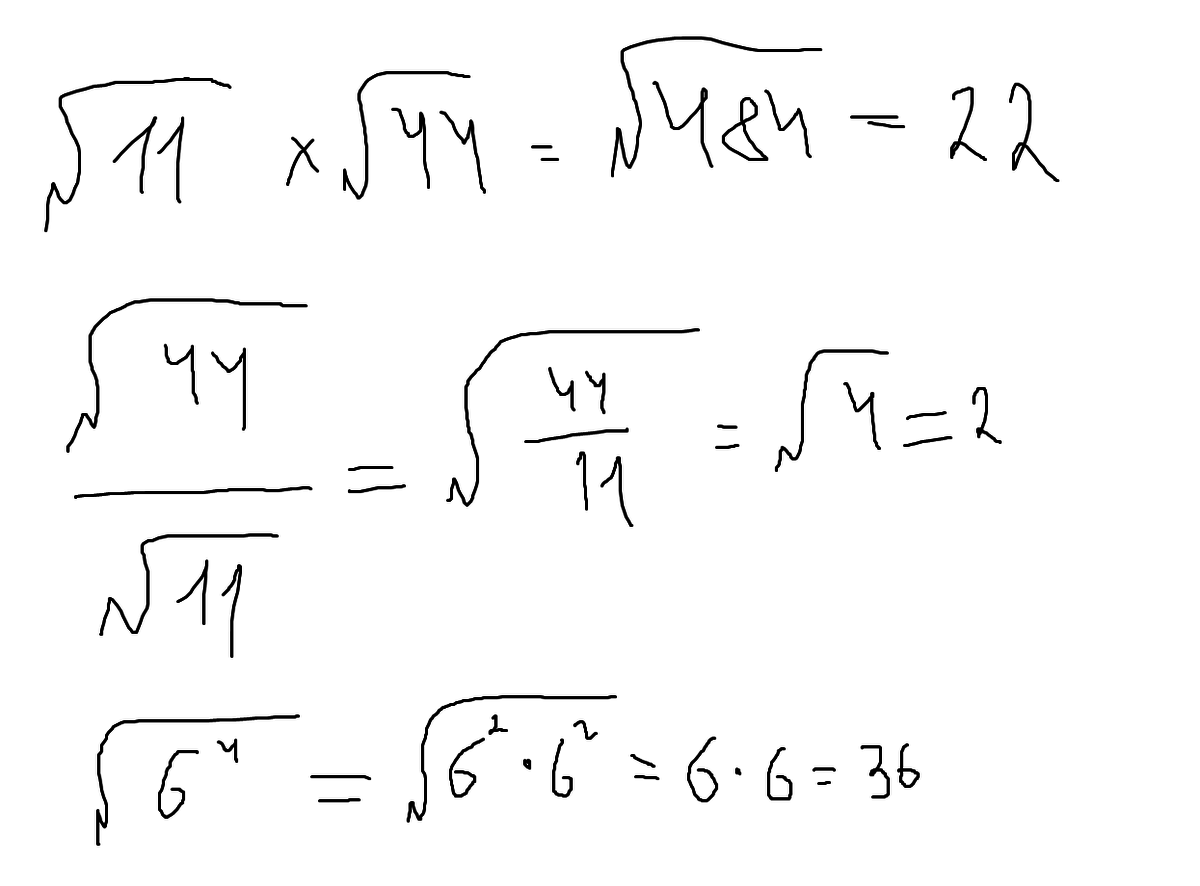 √11 × √44 = √484 = 22
√44/√11 = √(44/11) = √4 = 2
√6⁴ = √6² · 6² = 6 · 6 = 36